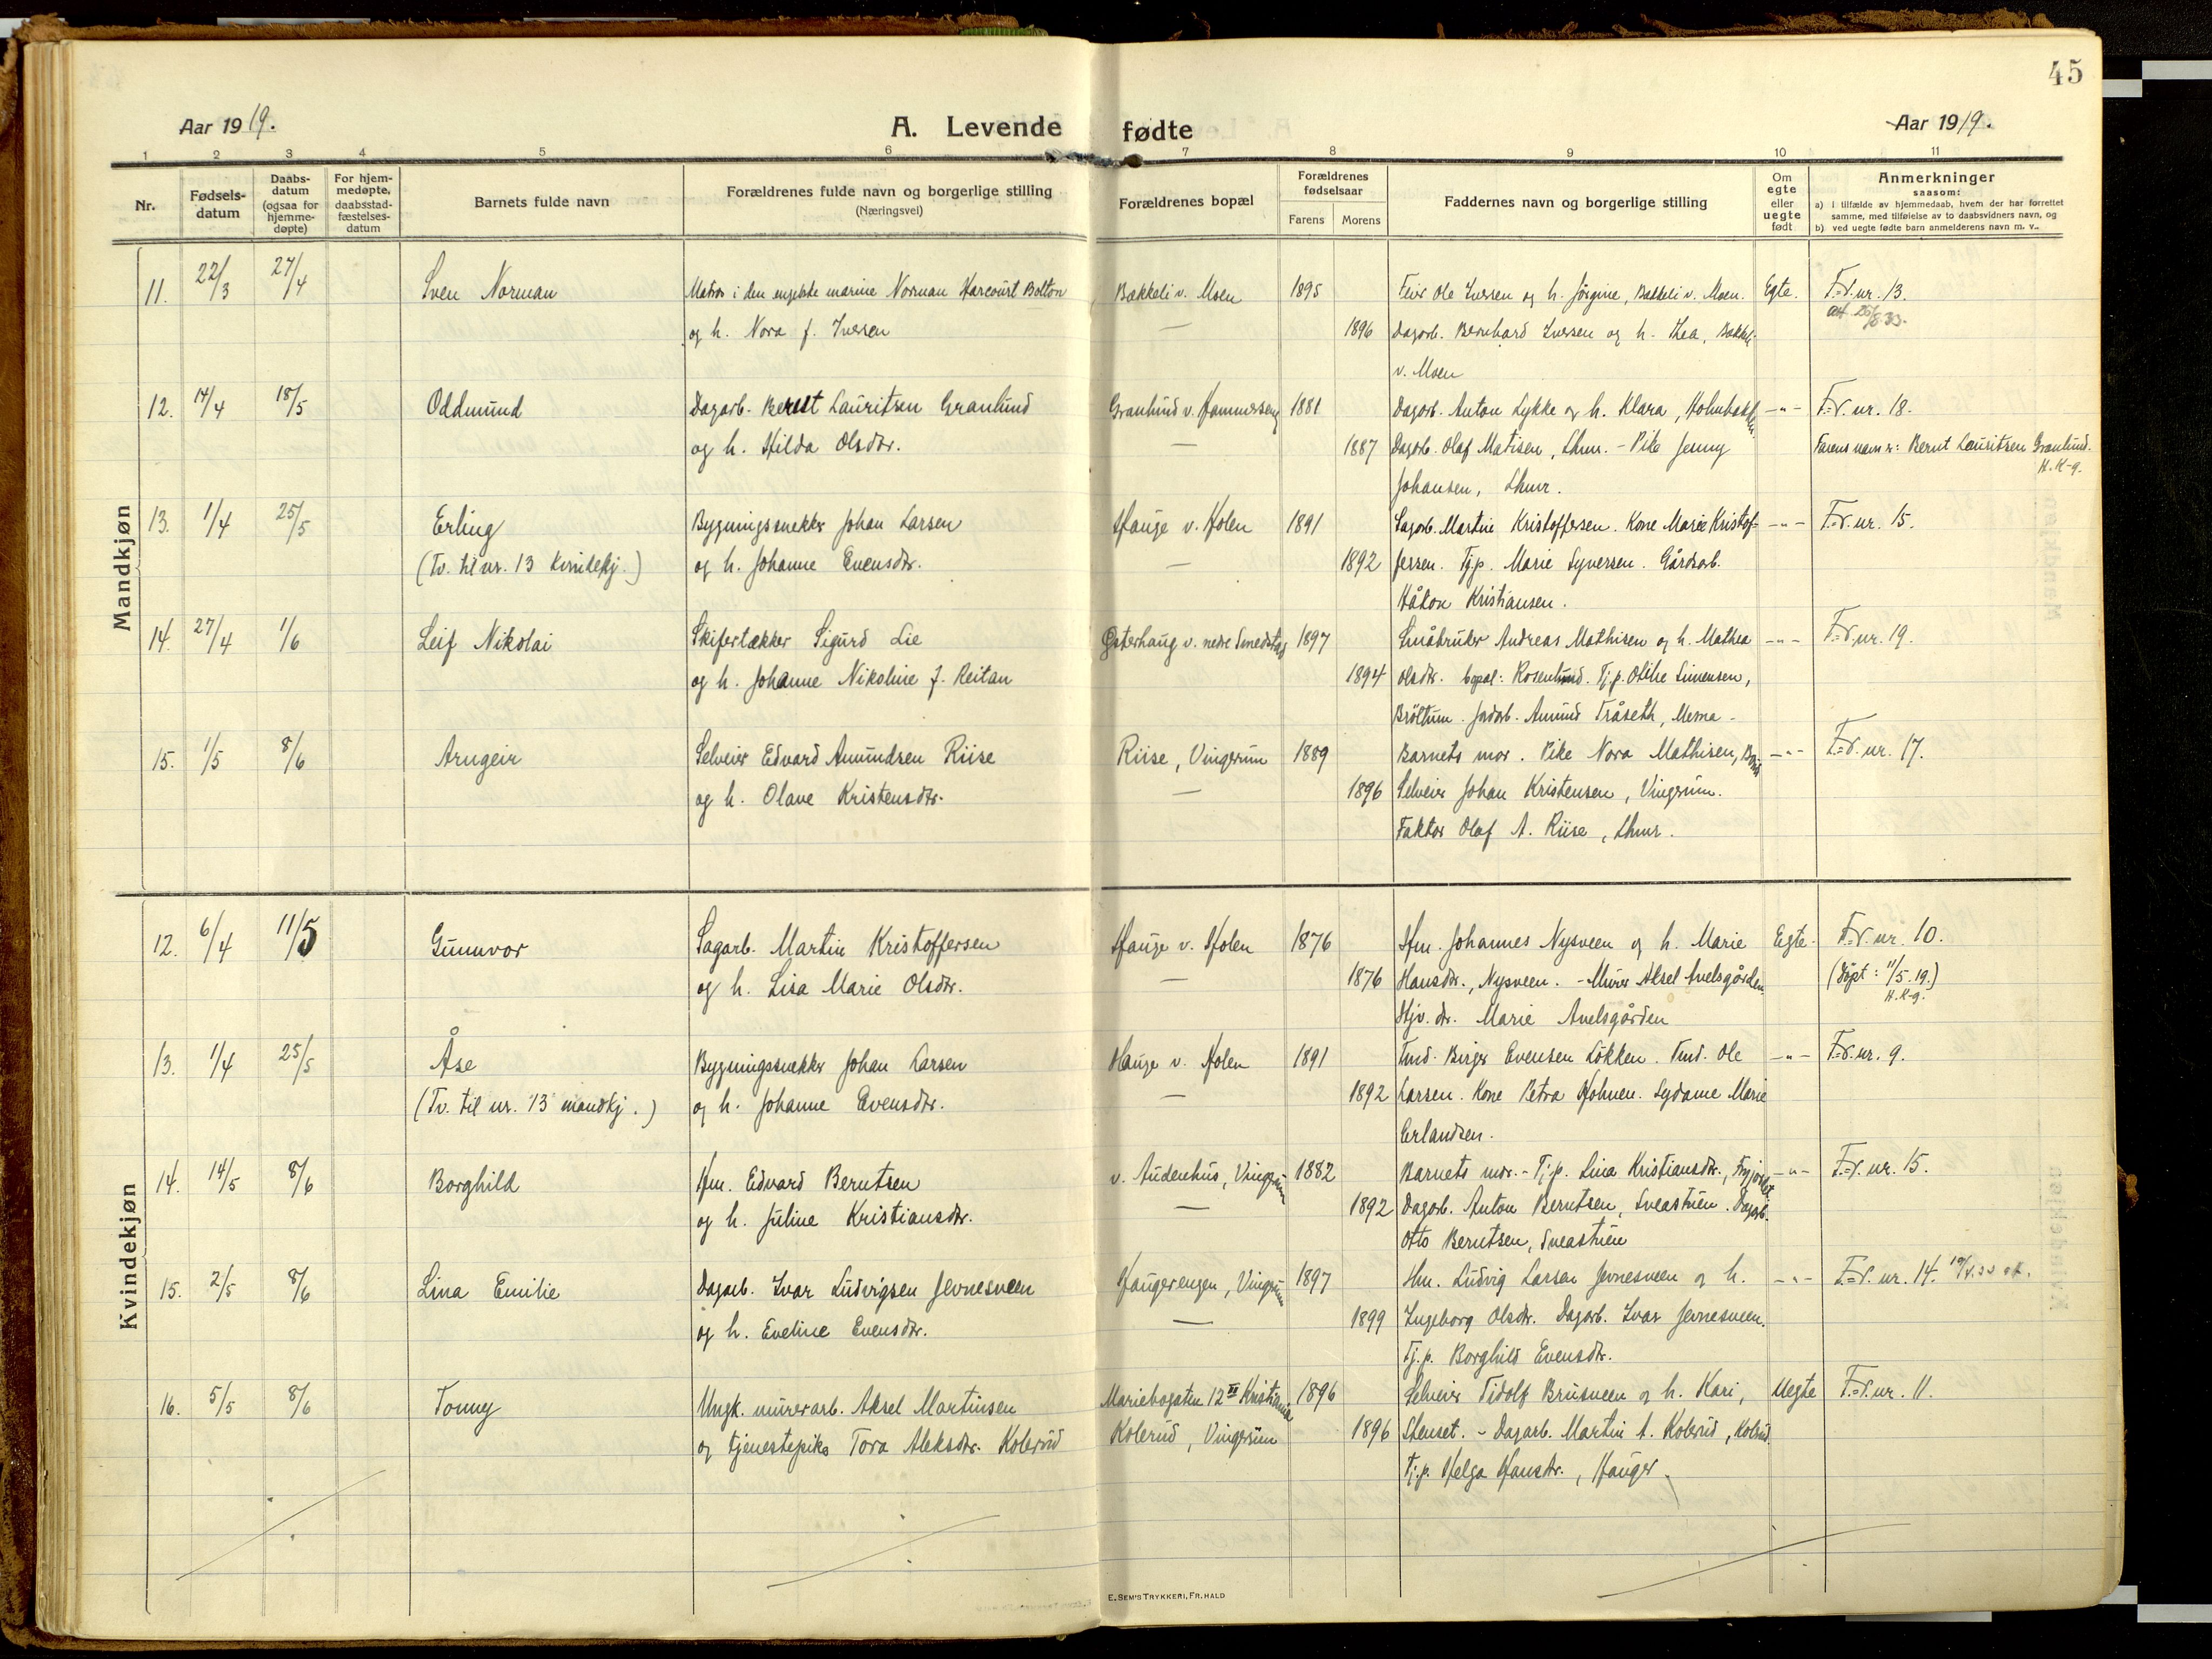 45
Aar 1919.
A. Levende fødte
Aar 1919.
1 2 3 4 5 6 7 8 9 10 11
Nr.
Fødsels-
datum
Daabs-
datum
(ogsaa for
hjemme-
døpte)
For hjem-
medøpte,
daabsstad-
fæstelses-
datum
Barnets fulde navn
Forældrenes fulde navn og borgerlige stilling
(Næringsvei)
Forældrenes bopæl
Forældrenes
fødselsaar
Farens Morens
Faddernes navn og borgerlige stilling
Om
egte
eller
uegte
født
Anmerkninger
saasom:
a) i tilfælde av hjemmedaab, hvem der har forrettet
samme, med tilføielse av to daabsvidners navn, og
b) ved uegte fødte barn anmelderens navn m. v..
Mandkjøn
11. 22/3 27/4 Sven Norman Matros i den engelske marine Norman Harcourt Bolton Bækkeli v. Moen 1895 Eier Ole Iversen og h. Jørgine, Bækkeli v. Moen. Egte. F.=r. nr. 13.
att. 25/8.33.
og h. Nora f. Iversen — 1896 Dagarb. Bernhard Iversen og h. Thea, Bækkeli
v. Moen
12. 14/4 18/5 Oddmund Dagarb. Berent Lauritsen Granlund Granlund v. Hammerseng 1881 Dagarb. Anton Lykke og h. Klara, -"- F.=r. nr. 18.
og h. Hilda Olsdtr. — 1887 Dagarb. Olaf Matisen, Lhmr. - Pike Jenny Farens navn er: Bernt Lauritsen Granlund.
H. K-g.
Johansen, Lhmr.
13. 1/4 25/5 Erling Bygningssnekker Johan Larsen Hauge v. Holen 1891 Sagarb. Martin Kristoffersen. Kone Marie Kristof- -"- F.=r. nr. 15.
(Tv. til nr. 13 kvindekj.) og h. Johanne Evensdtr. — 1892 fersen. Tj.p. Marie Syversen. Gårdsarb.
Håkon Kristiansen.
14. 27/4 1/6 Leif Nikolai Skifertækker Sigurd Lie Østerhaug v. nedre Smedstad 1897 Småbruker Andreas Mathisen og h. Mathea -"- F.=r. nr. 19.
og h. Johanne Nikoline f. Reitan 1894 Olsdtr. bopæl: Rosenlund. Tj.p. Otilie Simensen,
Brøttum. Jordarb. Amund Tråseth, Mesna.
15. 1/5 8/6 Arngeir Selveier Edvard Amundsen Riise Riise, Vingrum 1889 Barnets mor. Pike Nora Mathisen, -"- F.=r. nr. 17.
og h. Olave Kristensdtr. — 1896 Selveier Johan Kristensen, Vingrum.
Faktor Olaf A. Riise, Lhmr.
Kvindekjøn
12. 6/4 11/5 Gunnvor Sagarb. Martin Kristoffersen Hauge v. Holen 1876 Hm. Johannes Nysveen og h. Marie Egte. F.=r. nr. 10.
og h. Lisa Marie Olsdtr. — 1876 Hansdtr., Nysveen. - Murer Aksel Avelsgården. (Døpt: 11/5.19.)
H. K-g.
Hjv. dtr. Marie Avelsgården
13. 1/4 25/5 Åse Bygningssnekker Johan Larsen Hauge v. Holen 1891 Tmd. Birger Evensen Løkken. Tmd. Ole -"- F.=r. nr. 9.
(Tv. til nr. 13 mandkj.) og h. Johanne Evensdtr. — 1892 Larsen. Kone Petra Holmen. Sydame Marie
Erlandsen.
14. 14/5 8/6 Borghild Hm. Edvard Berntsen v. Audenhus, Vingrum 1882 Barnets mor. - Tj.p. Lina Kristiansdtr., -"- F.=r. nr. 15.
og h. Juline Kristiansdtr. — 1892 Dagarb. Anton Berntsen, Sveastuen. Dagarb.
Otto Berntsen, Sveastuen
15. 2/5 8/6 Lina Emilie Dagarb. Ivar Ludvigsen Jevnesveen Haugerengen, Vingrum 1897 Hm. Ludvig Larsen Jevnesveen og h. -"- F.=r. nr. 14.
og h. Eveline Evensdtr. — 1899 Ingeborg Olsdtr. Dagarb. Ivar Jevnesveen.
Tj.p. Borghild Evensdtr.
16. 5/5 8/6 Tonny Ungk. murerarb. Aksel Martinsen Mariebogaten 12 II Kristiania 1896 Selveier Tidolf Brusveen og h. Kari, Uegte F.=r. nr. 11.
og tjenestepike Tora Aleksdtr. Kolerud Kolerud, Vingrum 1896 Stenset. - Dagarb. Martin A. Kolerud, Kolerud
Tj.p. Helga Hansdtr., Hauger.
E. SEM'S TRYKKERI, FR.HALD